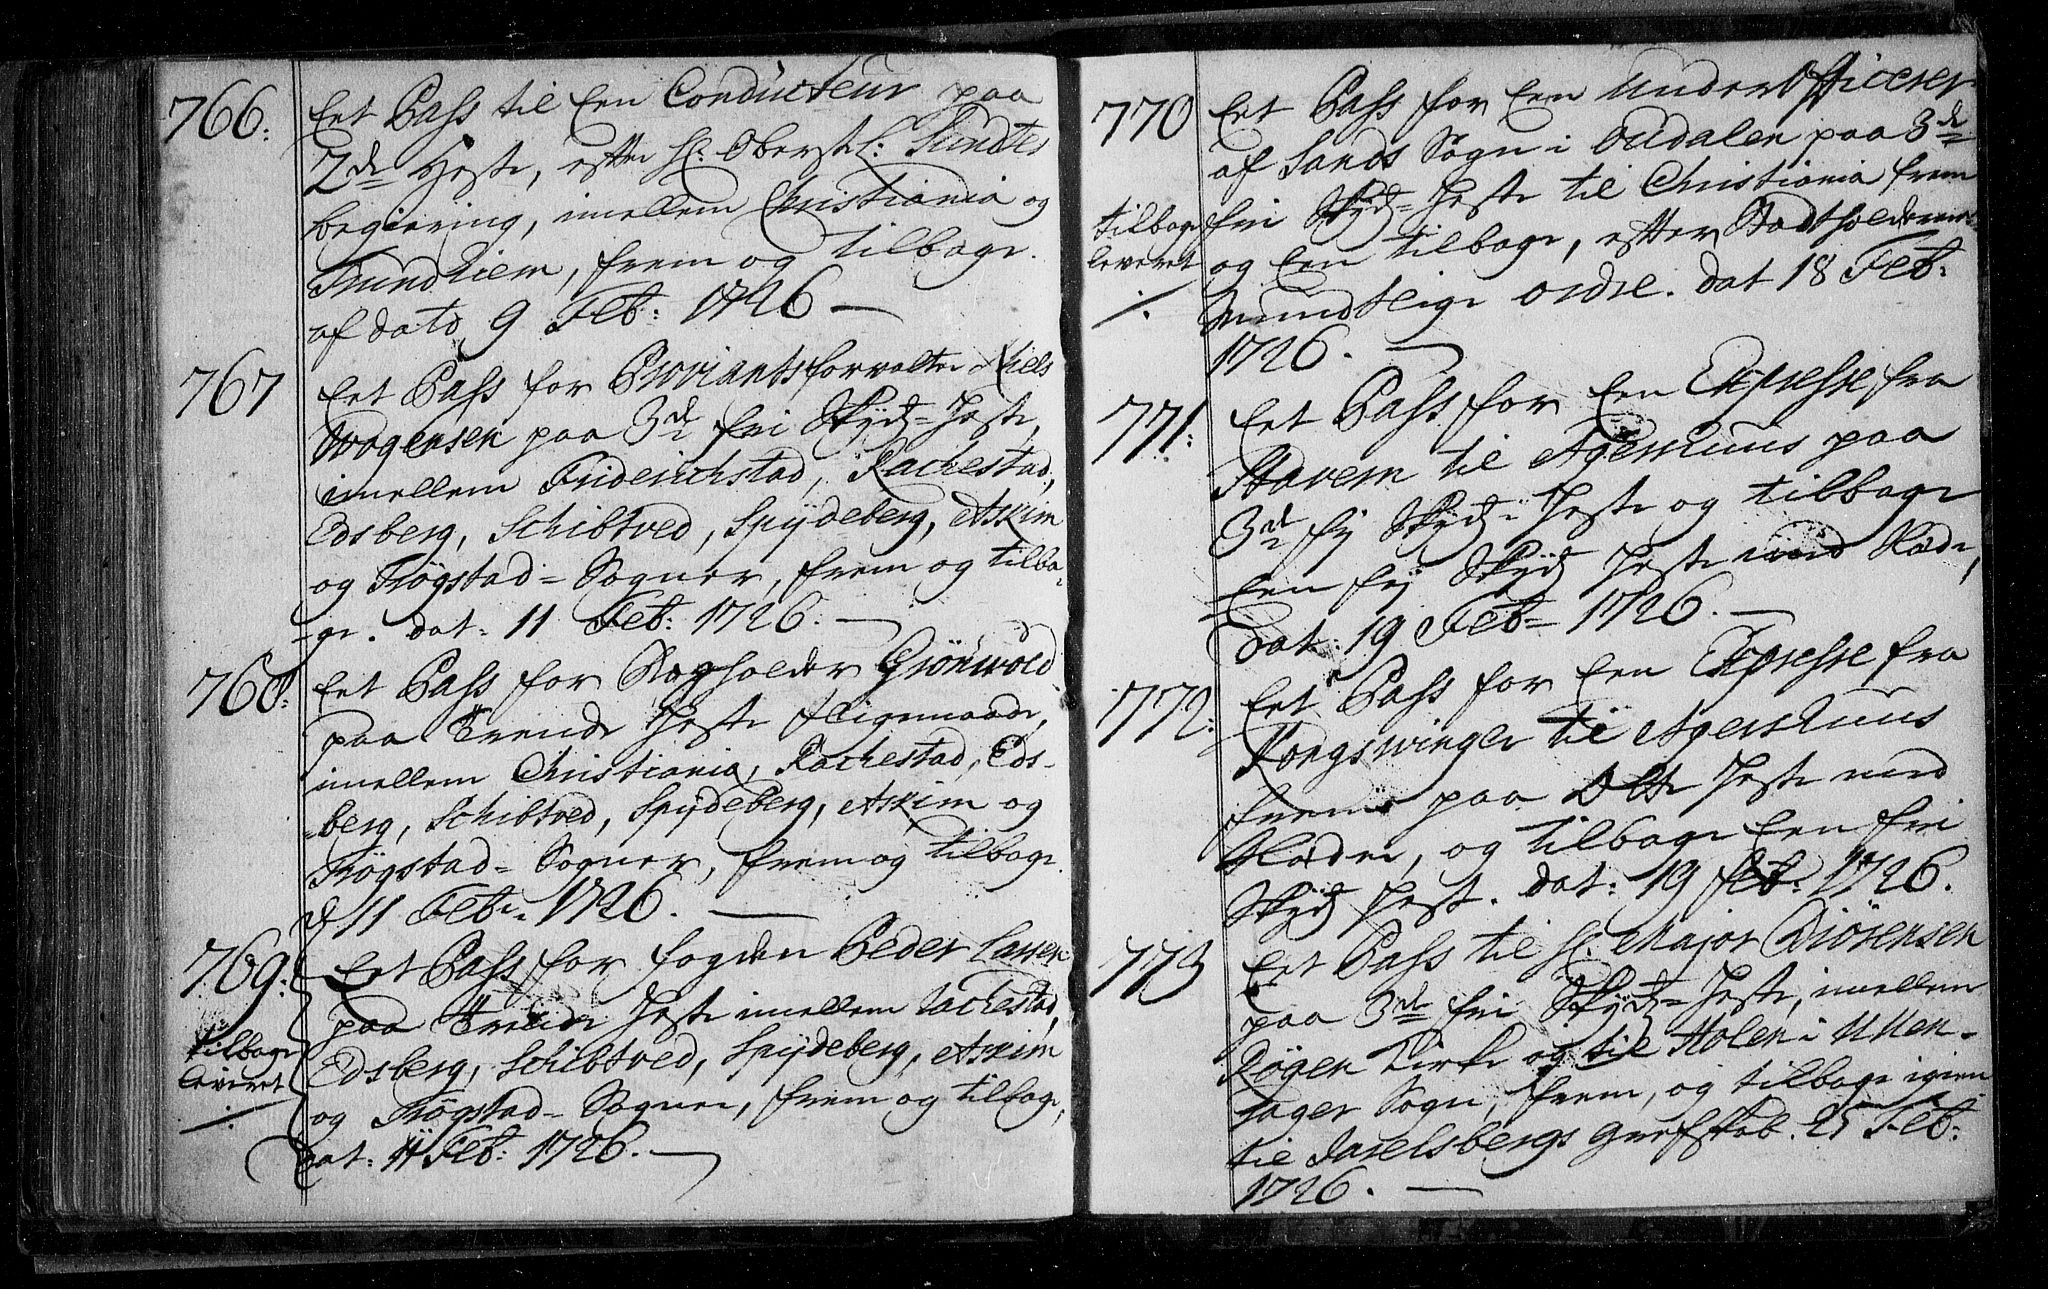 766:
Eet Pass til Een Conducteur paa
2de Heste, efter Hr: Oberstl: Sundtes
begiering, imellem Christiania og
Trundhiem, frem og tilbage.
af dato 9 Feb: 1726 —
767
Eet Pass for Proviantsforvalter Niels
Wogensen paa 3de fri Skyds-Heste,
imellem Friderichstad, Rachestad,
Edsberg, Schibtved, Spÿdeberg, Askim
og Trögstad-Sogner, frem og tilba-
-ge. dat: 11 Feb: 1726. —
768:
Eet Pass for Bogholder Grönwold
paa Trende Heste ligemaade,
imellem Christiania, Rachestad, Eds-
-berg, Schibtved, Spÿdeberg, Askim og
Trögstad-Sogner, frem og tilbage.
d 11 Feb: 1726. —
769:
tilbage
leveret
Eet Pass for fogden Peder Larsen
paa Trende Heste imellem Rachestad,
Edsberg, Schibtved, Spÿdeberg, Askim
og Trögstad-Sogner, frem og tilbage,
Dat: 11 Feb: 1726. —
770
tilbage
leveret
Eet Pass for Een Underofficerer
af Sands Sogn i Oudalen paa 3de
fri Skyds-Heste til Christiania frem
og Een tilbage, efter Stadtholderens
mundtlige ordre. dat 18 Feb:
1726. —
771:
Eet Pass for Een Expresse fra
Stavern til Agershuus paa
3de frj Skyds-Heste og tilbage
Een frj Skyds Heste med Slæde,
Dat: 19 Feb: 1726. —
772:
Eet Pass for Een Expresse fra
Kongswinger til Agershuus
frem paa Heste med
Slæde, og tilbage Een fri
Skyds Hest. dat: 19 feb: 1726.
773
Eet Pass til Hr. Major Diörensen
paa 3de fri Skyds-Heste, imellem
Röger Kirke og til Holen i Ullen-
sager Sogn, frem, og tilbage igien
til Jarelsbergs Grefskab. 25 Feb:
1726. —